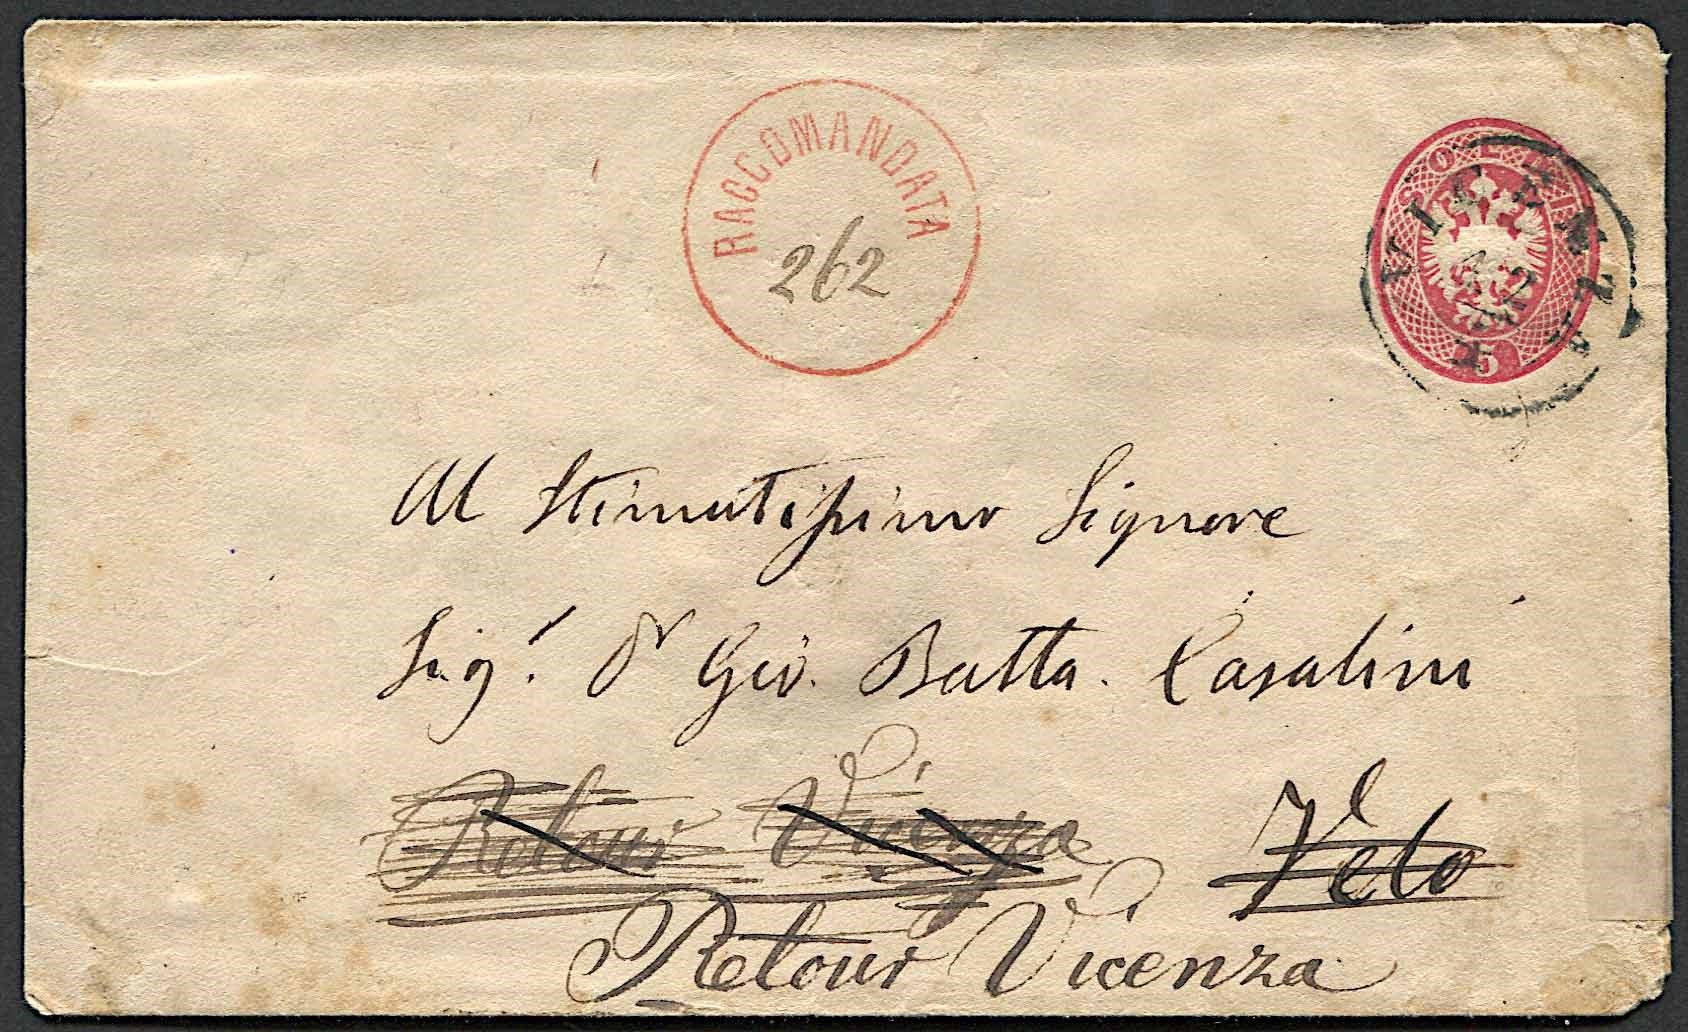 RACCOMANDATA
262
SOLDI
VICENZA
5
Al Stimatissimo Signore
Sig.r Dr Gio. Batta. Casalini
Retour Vicenza
Velo
Retour Vicenza